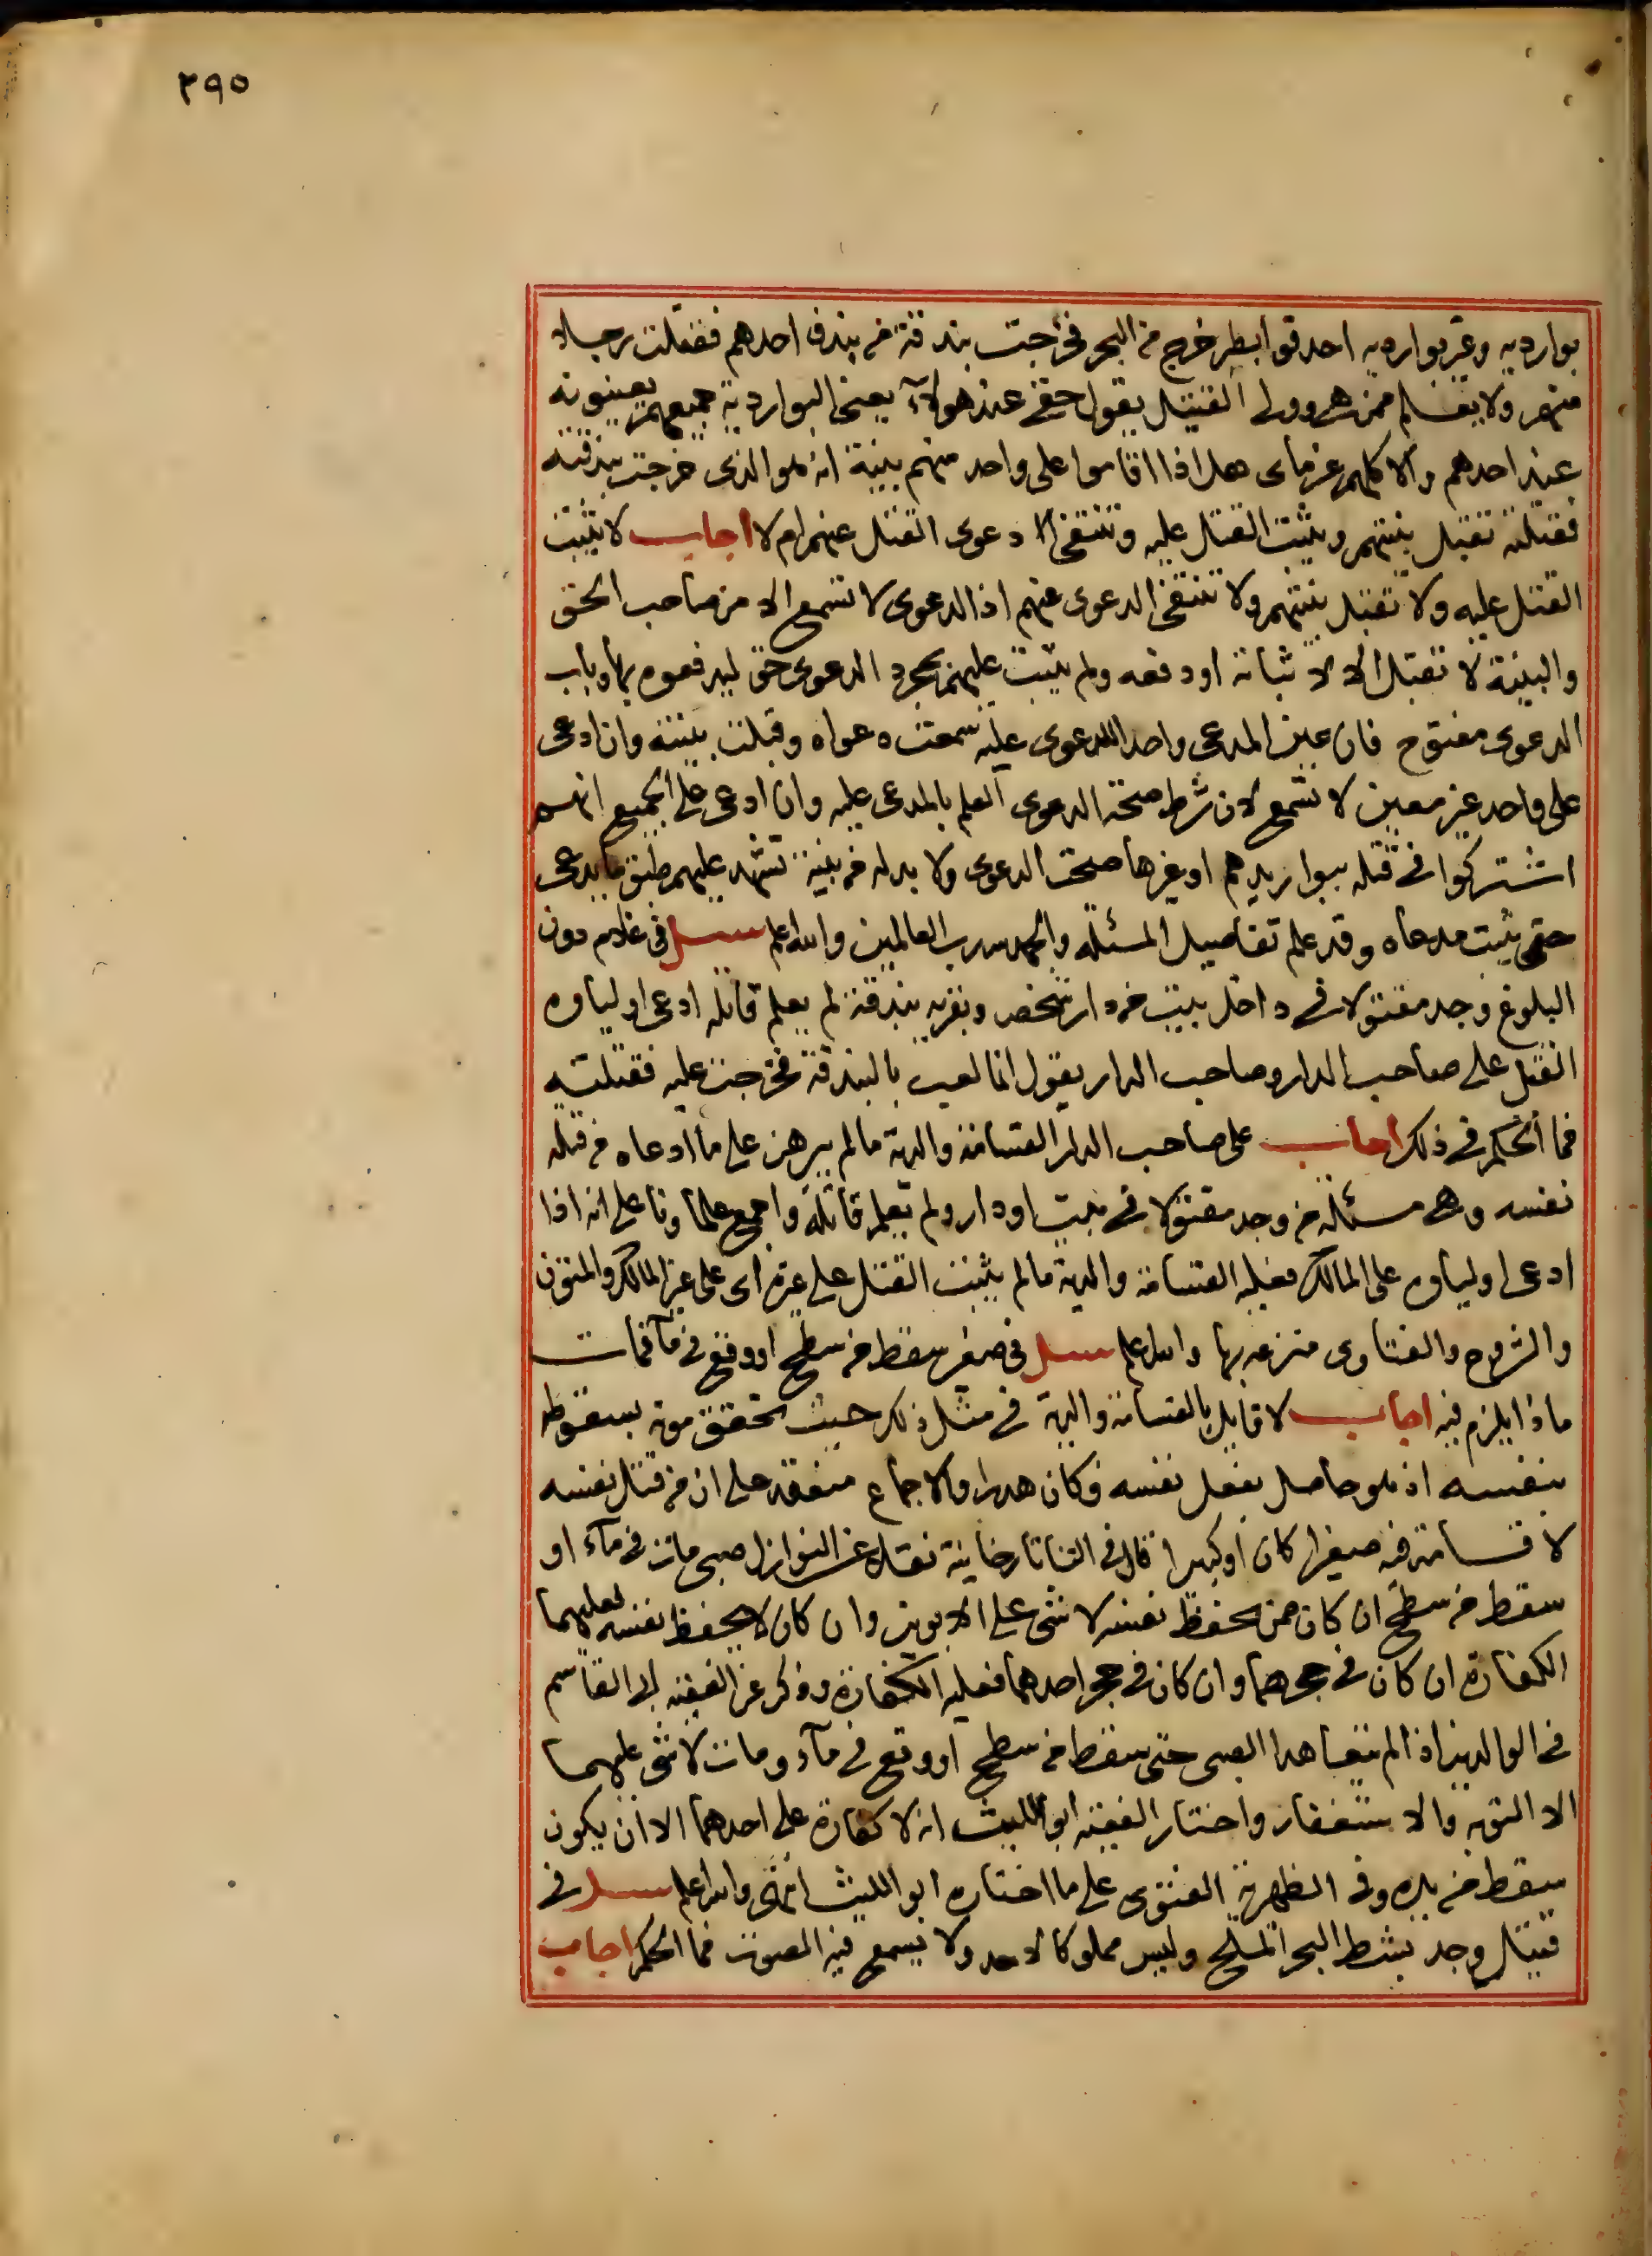 ٢٩٥
بوارديه وغير بوارديه احدقوا بطير خرج من البحر فخرجت بندقة من بندق احدهم فقتلت رجلا
منهم ولا يعلم ممن هي وولي القتيل يقول حقي عند هولاء يعني البوارديه جميعهم يعينونه
عند احدهم والا كلهم غرماى هل اذا اقاموا على واحد منهم بينة انه هو الذى خرجت بندقته
فقتلته تقبل بينتهم ويثبت القتل عليه وتنتفى دعوى القتل عنهم ام لا اجاب لا يثبت
القتل عليه ولا تقبل بينتهم ولا تنتفى الدعوى عنهم اذ الدعوى لا تسمع الا من صاحب الحق
والبينة لا تقبل الا لاثباته او دفعه ولم يثبت عليهم بمجرد الدعوى حق ليدفعوه بها وباب
الدعوى مفتوح فان عين المدعى واحدا للدعوى عليه سمعت دعواه وقبلت بينته وان ادعى
على واحد غير معين لا تسمع لان شرط صحة الدعوى العلم بالمدعى عليه وان ادعى على الجميع انهم
اشتركوا في قتله ببواريدهم او غيرها صحت الدعوى ولا بد له من بينة تشهد عليهم طبق ما يدعى
حتى يثبت مدعاه وقد علم تفاصيل المسئلة والحمد لله رب العالمين والله اعلم سئل فى غلام دون
البلوغ وجد مقتولا في داخل بيت من دار شخص وبقربه بندقة لم يعلم قاتله ادعى اولياوه
القتل على صاحب الدار وصاحب الدار يقول انما لعب بالبندقة فخرجت عليه فقتلته
فما الحكم في ذلك اجاب على صاحب الدار القسامة والدية ما لم يبرهن على ما ادعاه من قتله
نفسه وهي مسئلة من وجد مقتولا في بيت او دار ولم يعلم قاتله واجمع علماونا على انه اذا
ادعى اولياوه على المالك فعليه القسامة والدية ما لم يثبت القتل على غيره اى على غير المالك والمتون
والشروح والفتاوى مترعة بها والله اعلم سئل فى صغير سقط من سطح او وقع في ماء فمات
ماذا يلزم فيه اجاب لا قايل بالقسامة والدية في مثل ذلك حيث تحقق موته بسقوطه
بنفسه اذ هو حاصل بفعل نفسه فكان هدرا والاجماع منعقد على ان من قتل نفسه
لا قسامة فيه صغيرا كان او كبيرا قال في التاتارخانية نقلا عن النوازل صبى مات في ماء او
سقط من سطح ان كان ممن يحفظ نفسه لا شى على الابوين وان كان لا يحفظ نفسه فعليهما
الكفارة ان كان في حجرهما وان كان في حجر احدهما فعليه الكفارة وذكر عن الفقيه ابى القاسم
في الوالدين اذا لم يتعاهدا الصبى حتى سقط من سطح او وقع في ماء ومات لا شى عليهما
الا التوبة والاستغفار واختار الفقيه ابو الليث انه لا كفارة على احدهما الا ان يكون
سقط من يده وفى الظهيرية الفتوى على ما اختاره ابو الليث انتهى والله اعلم سئل في
قتيل وجد بشط البحر المالح وليس مملوكا لاحد ولا يسمع فيه الصوت فما الحكم اجاب